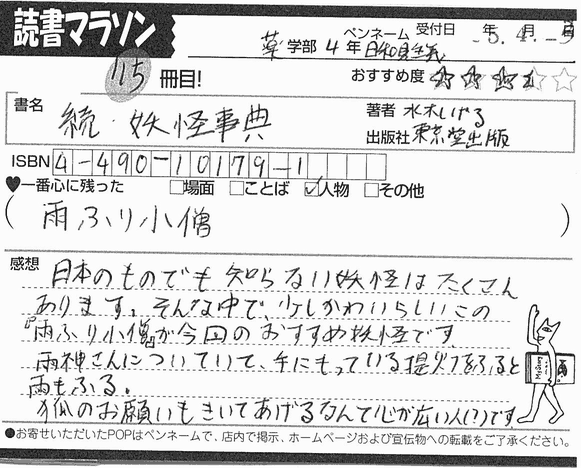 読書マラソン
ペンネーム 受付日 年 月 日
薬学部 4年 日和見主義 -5.4.-9
115冊目!
おすすめ度 ☆☆☆☆☆
書名
続・妖怪事典
著者 水木しげる
出版社 東京堂出版
ISBN 4-490-10179-1
♥一番心に残った □場面 □ことば ☑人物 □その他
(雨ふり小僧)
感想
日本のものでも知らない妖怪はたくさん
あります。そんな中で、少しかわいらしいこの
『雨ふり小僧』が今回のおすすめ妖怪です
雨神さんについていて、手にもっている提灯をふると
雨もふる。
狐のお願いもきいてあげるなんて心が広い人(?)です
●お寄せいただいたPOPはペンネームで、店内で掲示、ホームページおよび宣伝物への転載をご了承ください。